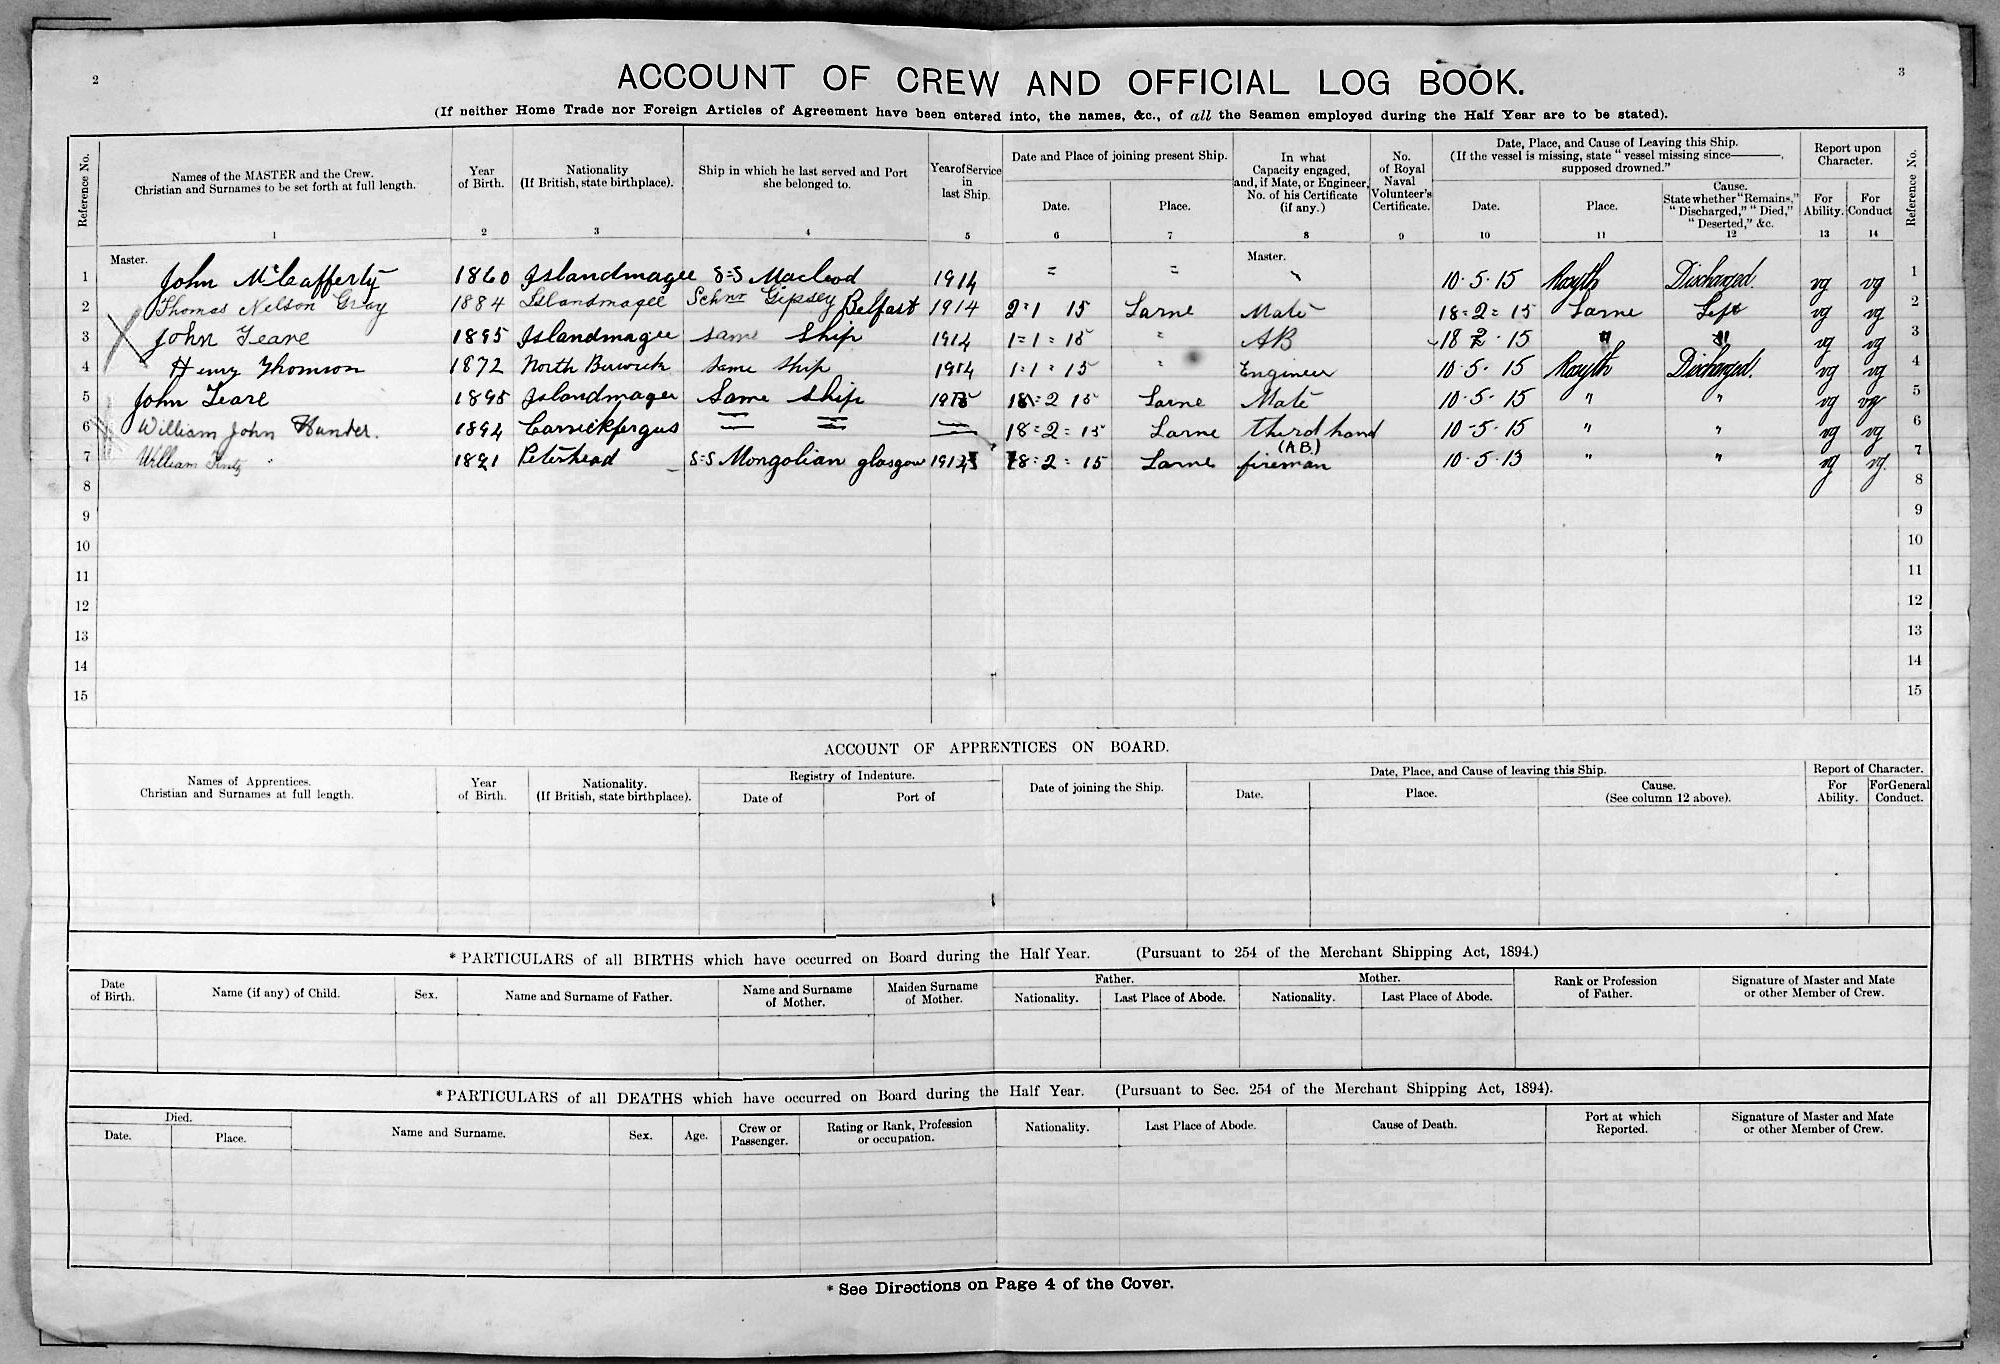 2
3
ACCOUNT OF CREW AND OFFICIAL LOG BOOK.
(If neither Home Trade nor Foreign Articles of Agreement have been entered into, the names, &c., of all the Seamen employed during the Half Year are to be stated).
Reference No.
Names of the MASTER and the Crew.
Christian and Surnames to be set forth at full length.
1
Year
of Birth.
2
Nationality
(If British, state birthplace).
3
Ship in which he last served and Port
she belonged to.
4
Year of Service
in
last Ship.
5
Date and Place of joining present Ship.
Date.
6
Place.
7
In what
Capacity engaged,
and, if Mate, or Engineer,
No. of his Certificate
(if any.)
8
No.
of Royal
Naval
Volunteer's
Certificate.
9
Date, Place, and Cause of Leaving this Ship.
(If the vessel is missing, state "vessel missing since———,
supposed drowned."
Date.
10
Place.
11
Cause.
State whether "Remains,"
"Discharged," "Died,"
"Deserted," &c.
12
Report upon
Character.
For
Ability.
13
For
Conduct
14
Reference No.
Master.
Master.
1 John McCafferty 1860 Islandmagee S=S Macleod 1914 = = " 10·5·15 Rosyth Discharged. vg vg 1
2 Thomas Nelson Gray 1884 Islandmagee Schnr Gipsey Belfast 1914 2=1 15 Larne Mate 18=2=15 Larne Left vg vg 2
3 John Teare 1895 Islandmagee same ship 1914 1=1=15 " AB 18 2·15 " " vg vg 3
4 Henry Thomson 1872 North Berwick same ship 1914 1=1=15 " Engineer 10·5·15 Rosyth Discharged. vg vg 4
5 John Teare 1895 Islandmagee Same Ship 1915 18=2 15 Larne Mate 10·5·15 " " vg vg 5
6 William John Hunter. 1894 Carrickfergus = = = 18=2=15 Larne third hand 10-5·15 " " vg vg 6
(A.B.)
7 William 1891 Peterhead S=S Mongolian glasgow 18=2=15 Larne fireman 10·5·15 " " vg vg. 7
8 vg vg 8
9 9
10 10
11 11
12 12
13 13
14 14
15 15
ACCOUNT OF APPRENTICES ON BOARD.
Names of Apprentices.
Christian and Surnames at full length.
Year
of Birth.
Nationality.
(If British, state birthplace).
Registry of Indenture.
Date of
Port of
Date of joining the Ship.
Date, Place, and Cause of leaving this Ship.
Date.
Place.
Cause.
(See column 12 above).
Report of Character.
For
Ability.
For General
Conduct.
* PARTICULARS of all BIRTHS which have occurred on Board during the Half Year. (Pursuant to 254 of the Merchant Shipping Act, 1894.)
Date
of Birth.
Name (if any) of Child.
Sex.
Name and Surname of Father.
Name and Surname
of Mother.
Maiden Surname
of Mother.
Father.
Nationality.
Last Place of Abode.
Mother.
Nationality.
Last Place of Abode.
Rank or Profession
of Father.
Signature of Master and Mate
or other Member of Crew.
* PARTICULARS of all DEATHS which have occurred on Board during the Half Year. (Pursuant to Sec. 254 of the Merchant Shipping Act, 1894).
Died.
Date.
Place.
Name and Surname.
Sex.
Age.
Crew or
Passenger.
Rating or Rank, Profession
or occupation.
Nationality.
Last Place of Abode.
Cause of Death.
Port at which
Reported.
Signature of Master and Mate
or other Member of Crew.
* See Directions on Page 4 of the Cover.